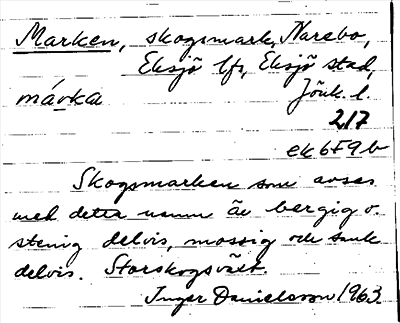 Marken, skogsmark, Narebo,
Eksjö lfs, Eksjö stad,
márka Jönk. l.
217
ek6F9b
Skogsmarken som avses
med detta namn är bergig o.
stenig delvis, mossig och sank
delvis. Storskogsväxt.
Inger Danielsson 1963.